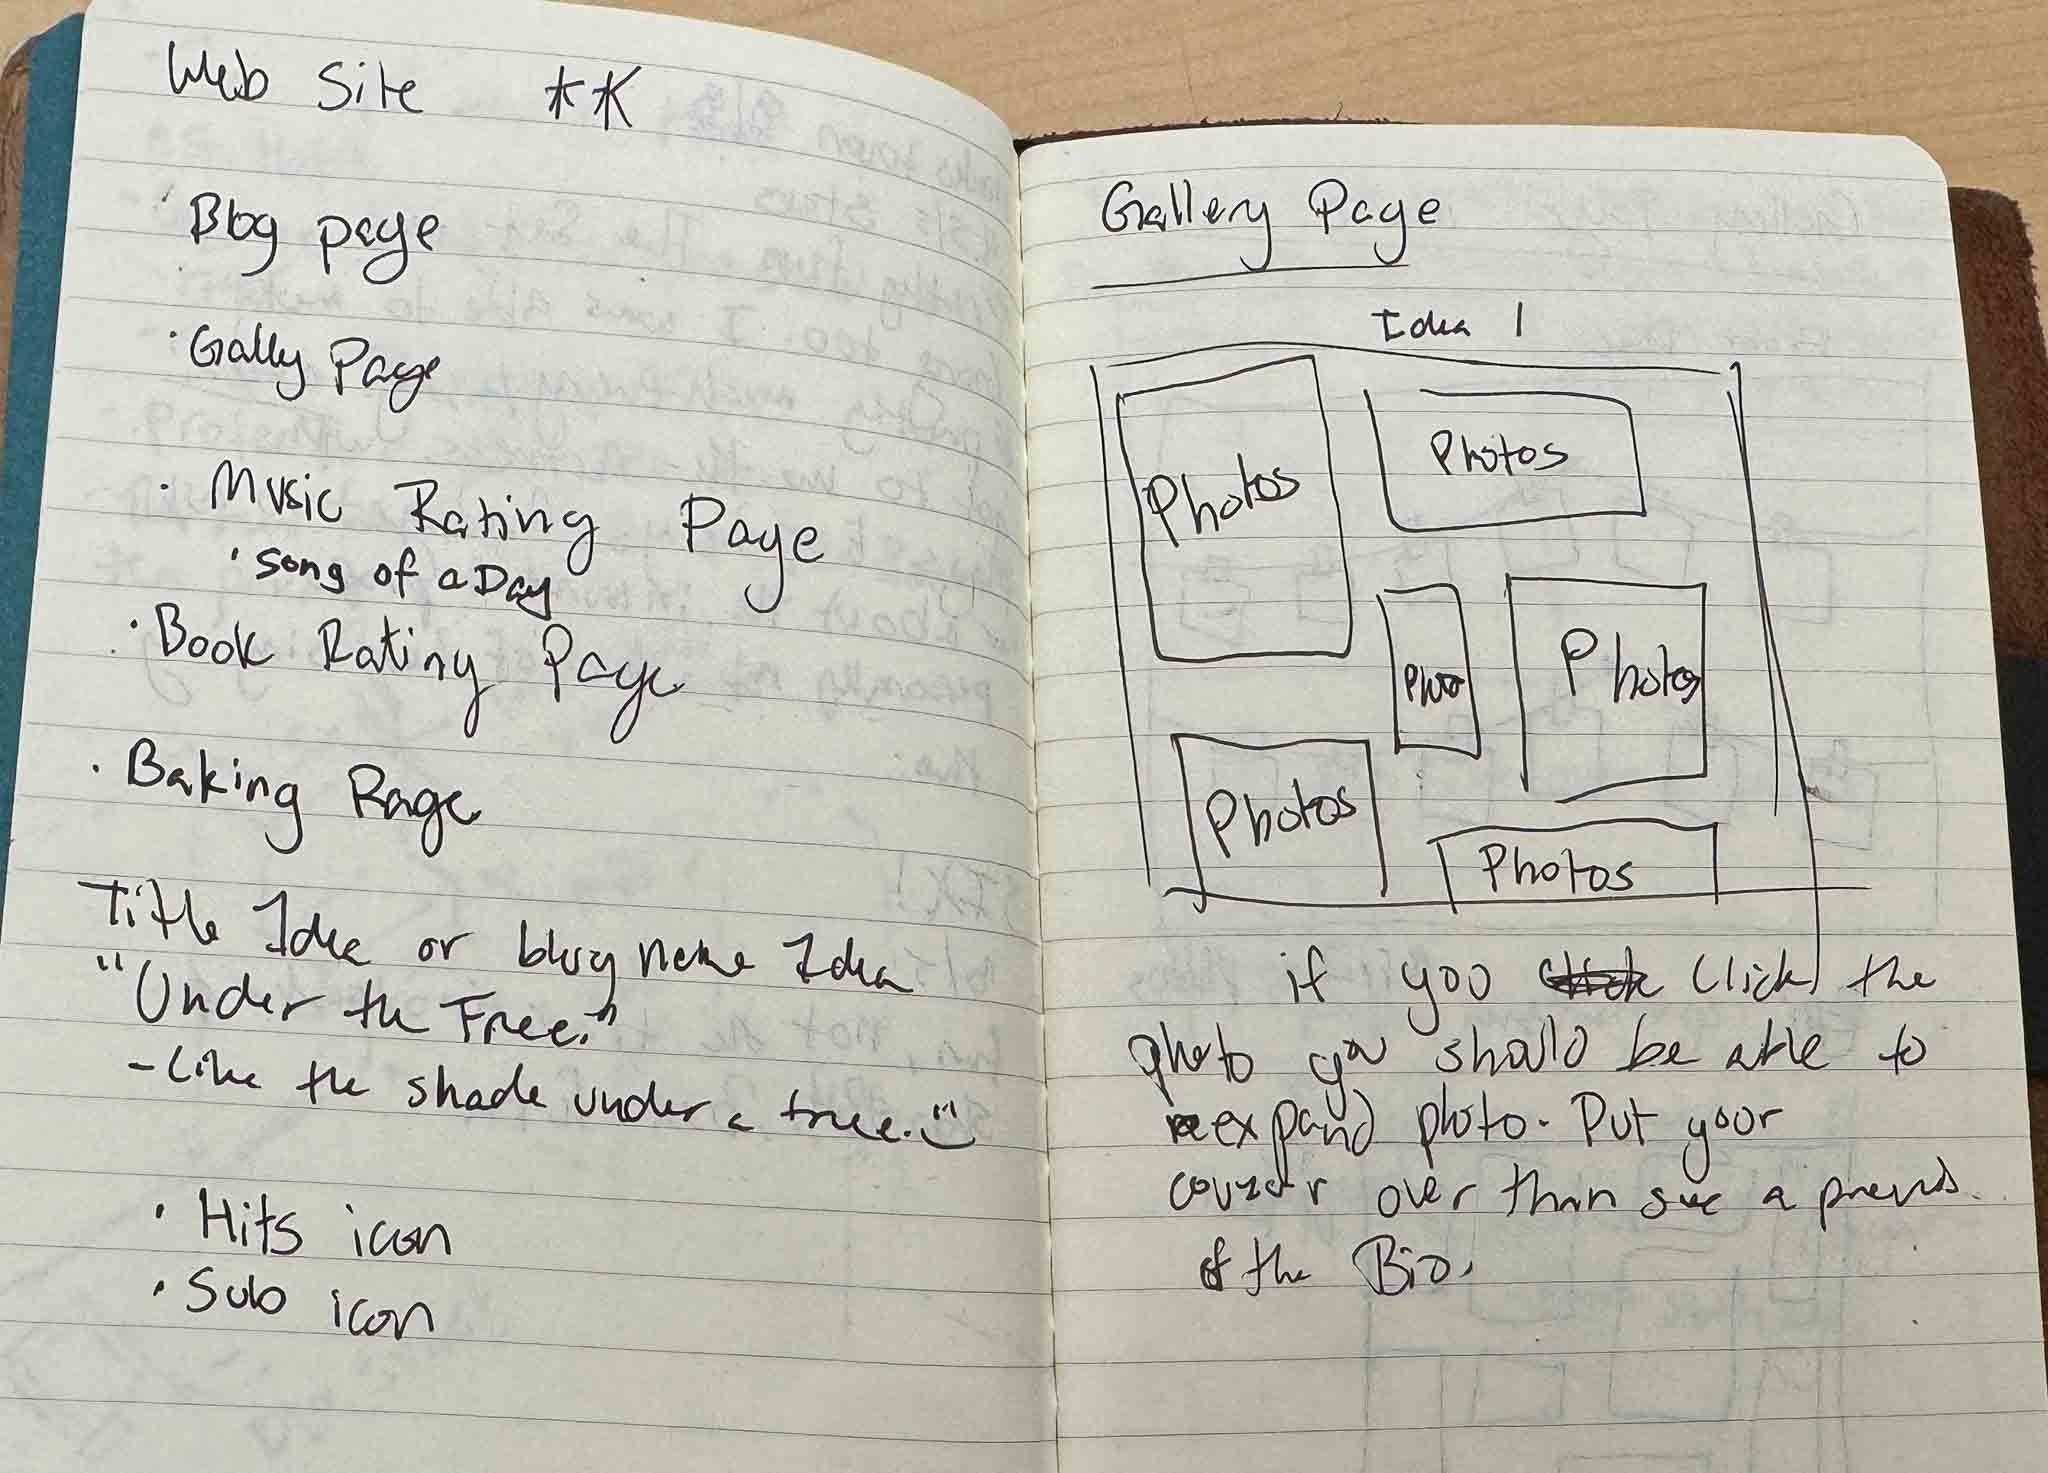 Web Site **
· Blog page
· Gally Page
· Music Rating Page
· Song of a Day
· Book Rating Page
· Baking Page
Title Idea or blog name Idea
"Under the Tree."
- Like the shade under a tree.
· Hits icon
· Sub icon
Gallery Page
Idea 1
Photos
Photos
Photo
Photos
Photos
Photos
if you click the
photo you should be able to
expand photo. Put your
over than see a
of the Bio.